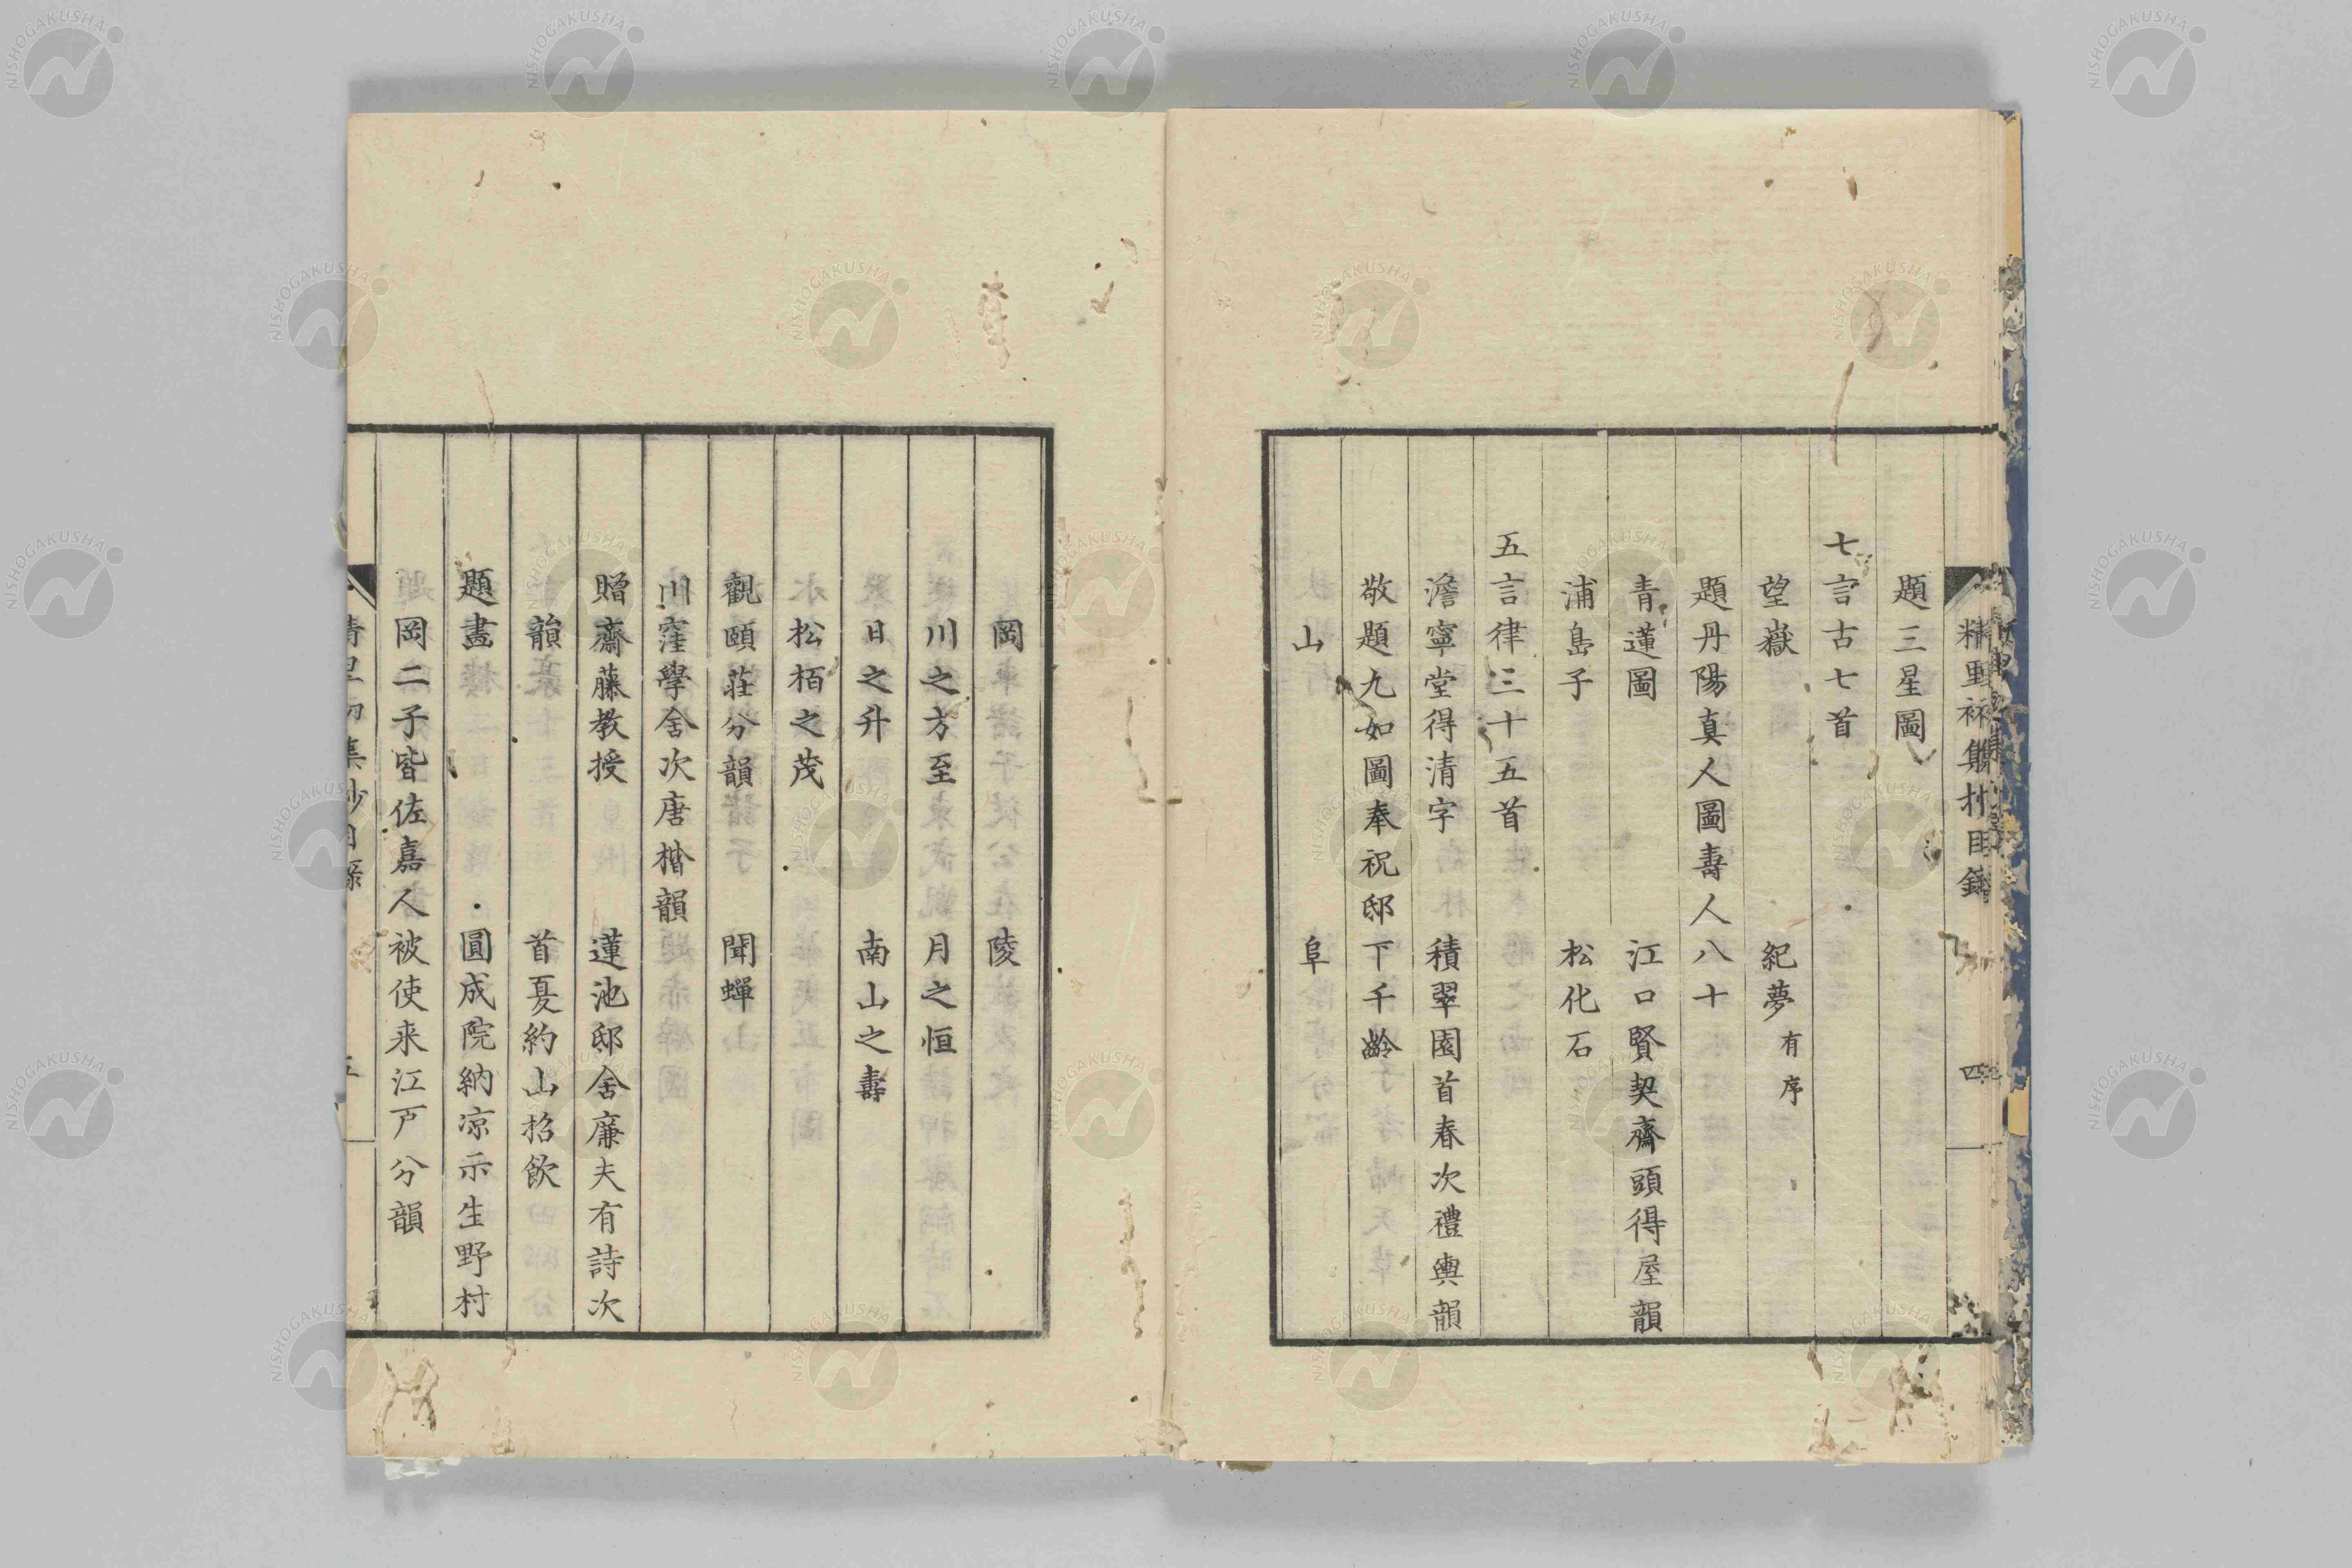 題三星圖
七言古七首
望嶽 紀夢有序
題丹陽真人圖壽人八十
青蓮圖 江口賢契齋頭得屋韻
浦島子 松化石
五言律三十五首
澹寧堂得清字 積翠園首春次禮輿韻
敬題九如圖奉祝邸下千齡
山 阜
岡 陵
川之方至 月之恒
日之升 南山之壽
松栢之茂
觀頤莊分韻 聞蟬
川窪學舍次唐楷韻
贈齋藤教授 蓮池邸舍廉夫有詩次
韻 首夏約山招飲
題畫 圓成院納凉示生野村
岡二子皆佐嘉人被使来江戸分韻
四
NISHOGAKUSHA